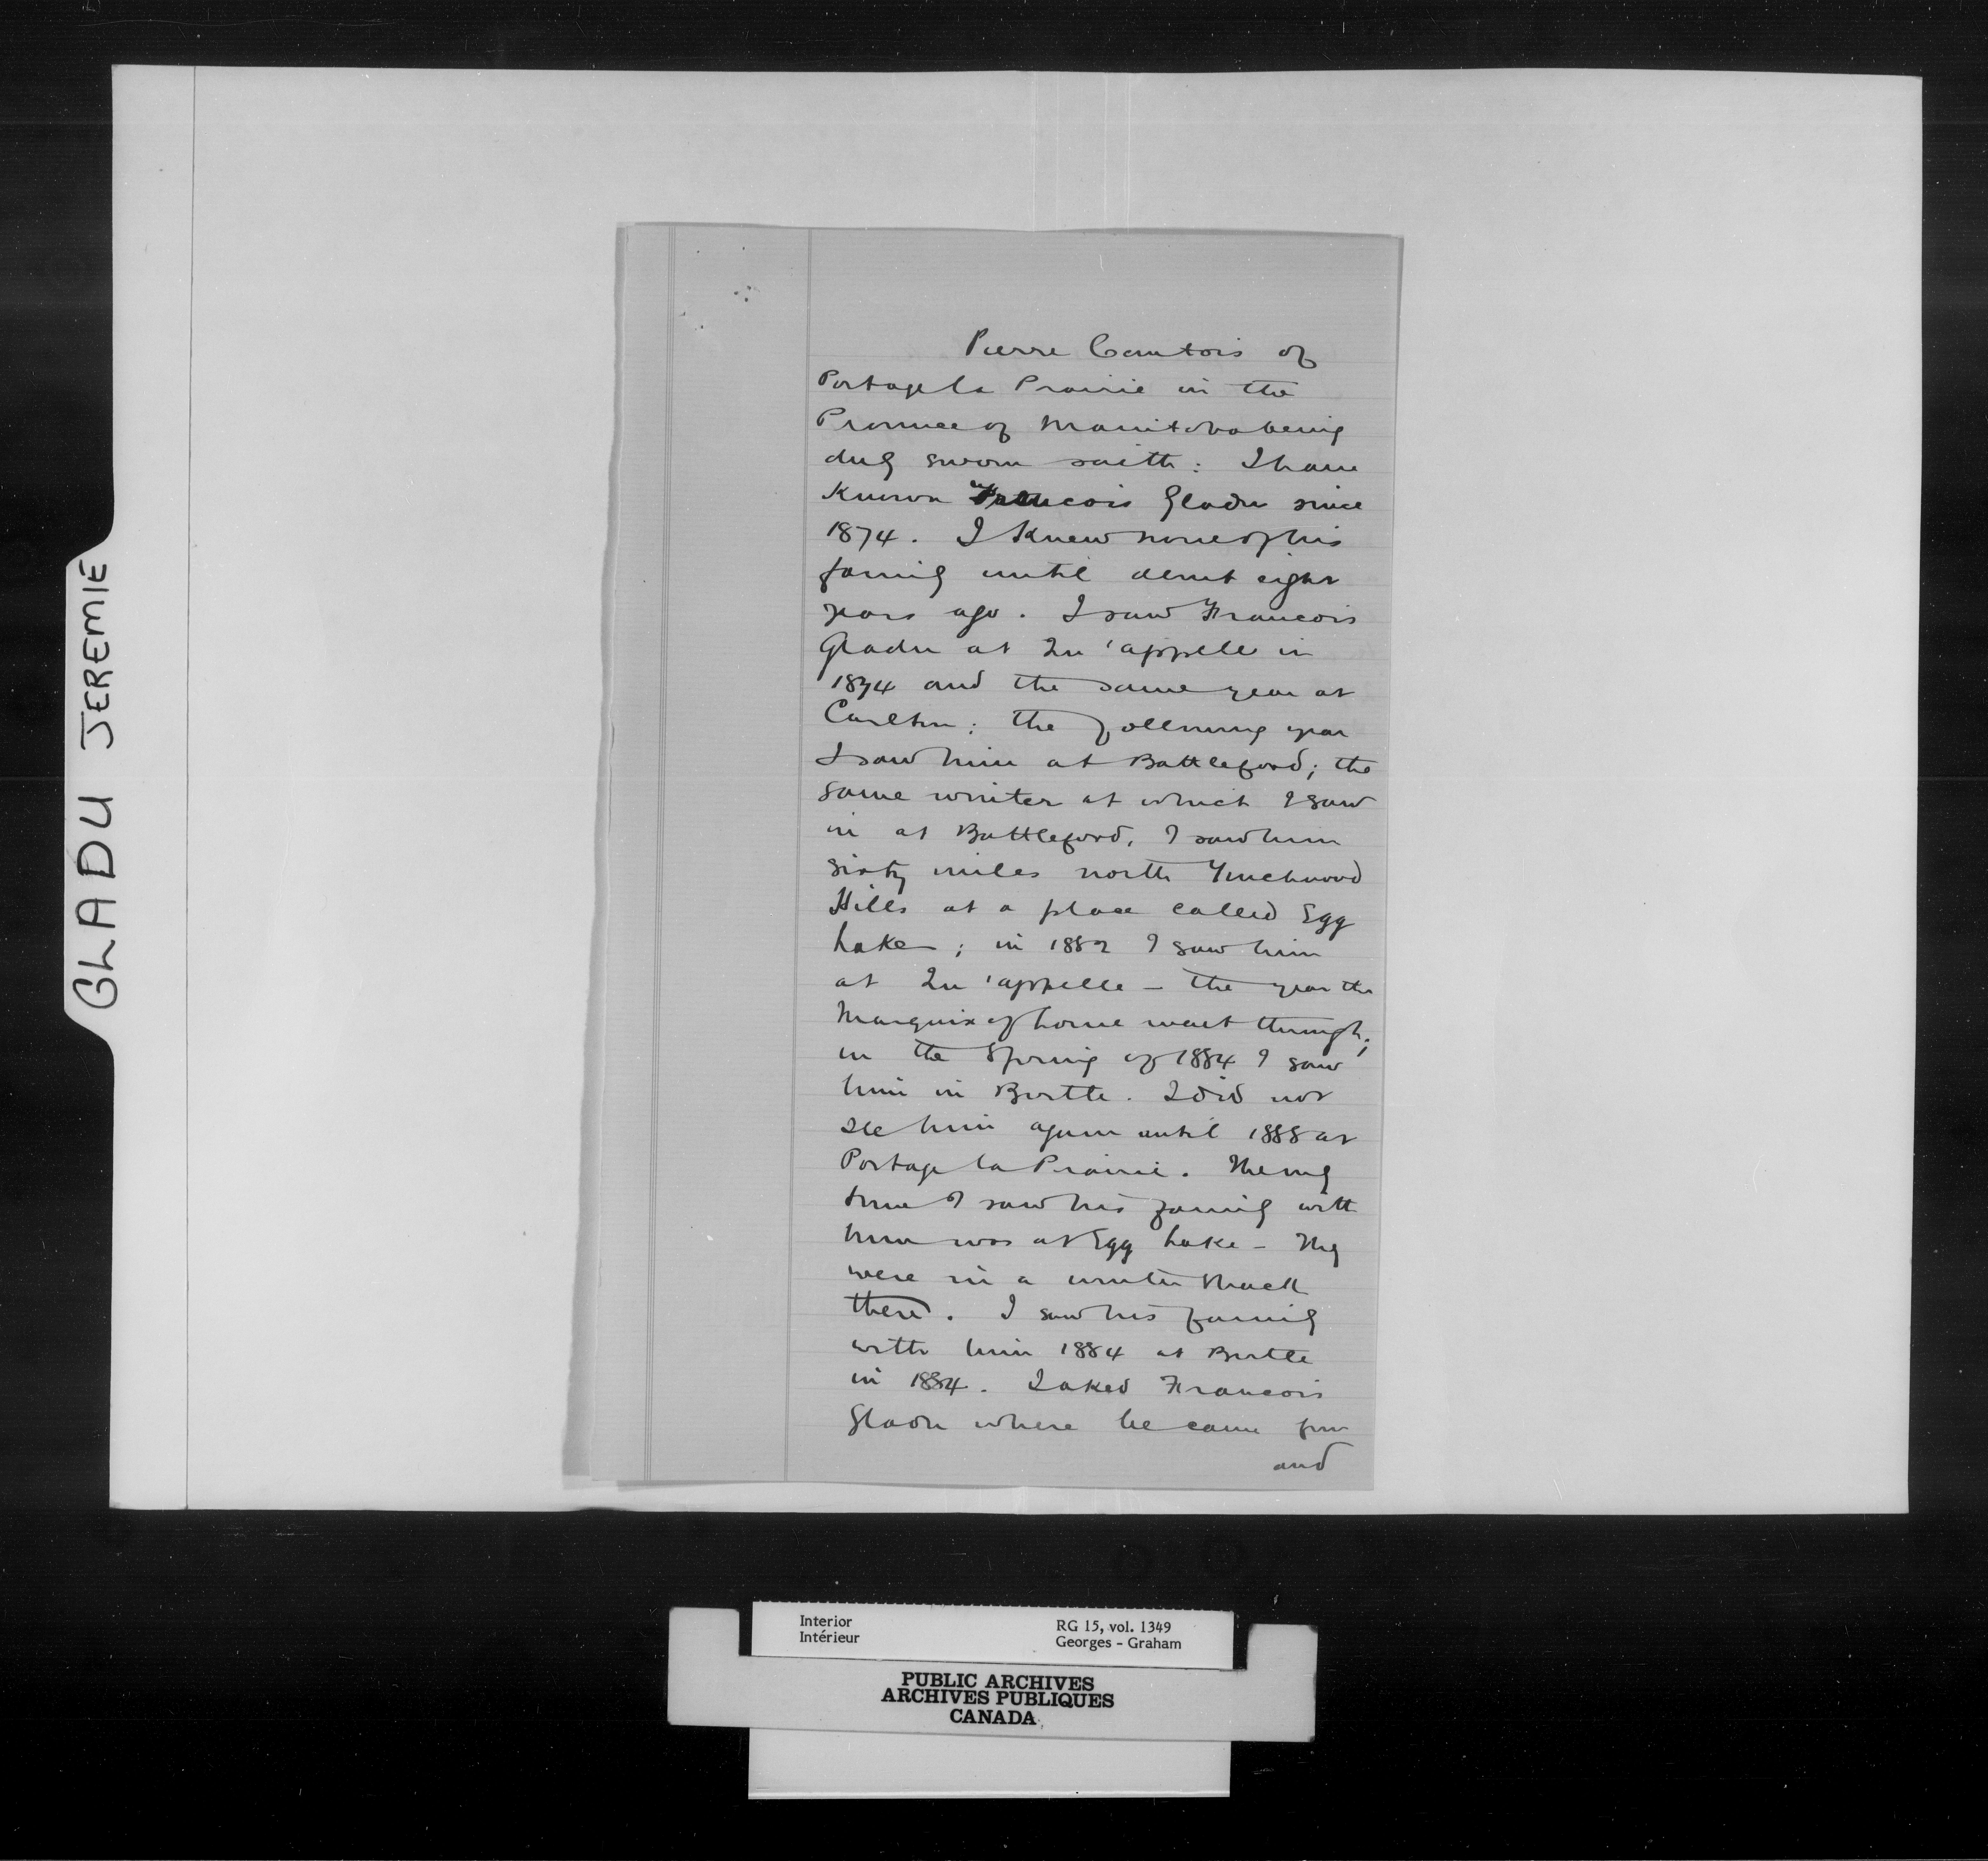 GLADU JEREMIE
Pierre Comtois of
Portage la Prairie in the
Province of Manitoba being
duly sworn saith: I have
Known Francois Gladu since
1874. I Knew none of his
family until about eight
years ago. I saw Francois
Gladu at Qu'appelle in
1874 and the same year at
Carlton; the following year
I saw him at Battleford; the
same winter at which I saw
in at Battleford, I saw him
sixty miles north Touchwood
Hills at a place called Egg
Lake; in 1882 I saw him
at Qu'appelle - the year the
Marquis of Lorne went through;
in the Spring of 1884 I saw
him in Birtle. I did not
see him again until 1888 at
Portage la Prairie. The only
time I saw his family with
him was at Egg Lake - They
were in a winter shack
there. I saw his family
with him 1884 at Birtle
in 1884. I asked Francois
Gladu where he came from
and
Interior
Intérieur
RG 15, vol. 1349
Georges - Graham
PUBLIC ARCHIVES
ARCHIVES PUBLIQUES
CANADA